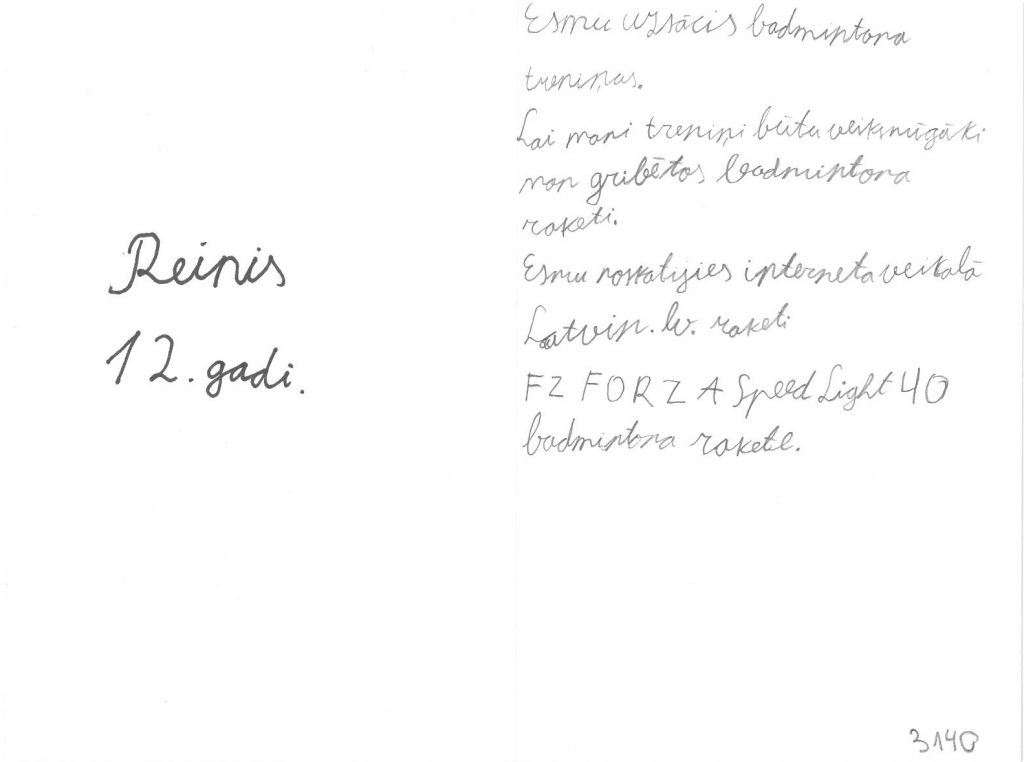 Reinis
12. gadi.
Esmu uzsācis badmintona
treniņas.
Lai mani treniņi būtu veiksmīgāki
man gribētos badmintona
raketi.
Esmu noskatijies interneta veikalā
Latvin.lv. raketi
FZ FORZA Speed Light 40
badmintona rakete.
3140